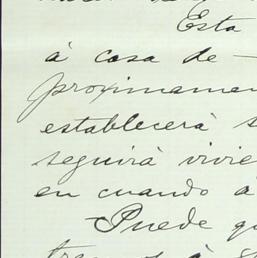 Esta
à casa de
proximamen
establecerà s
seguirà vivie
en cuando à
Puede qu